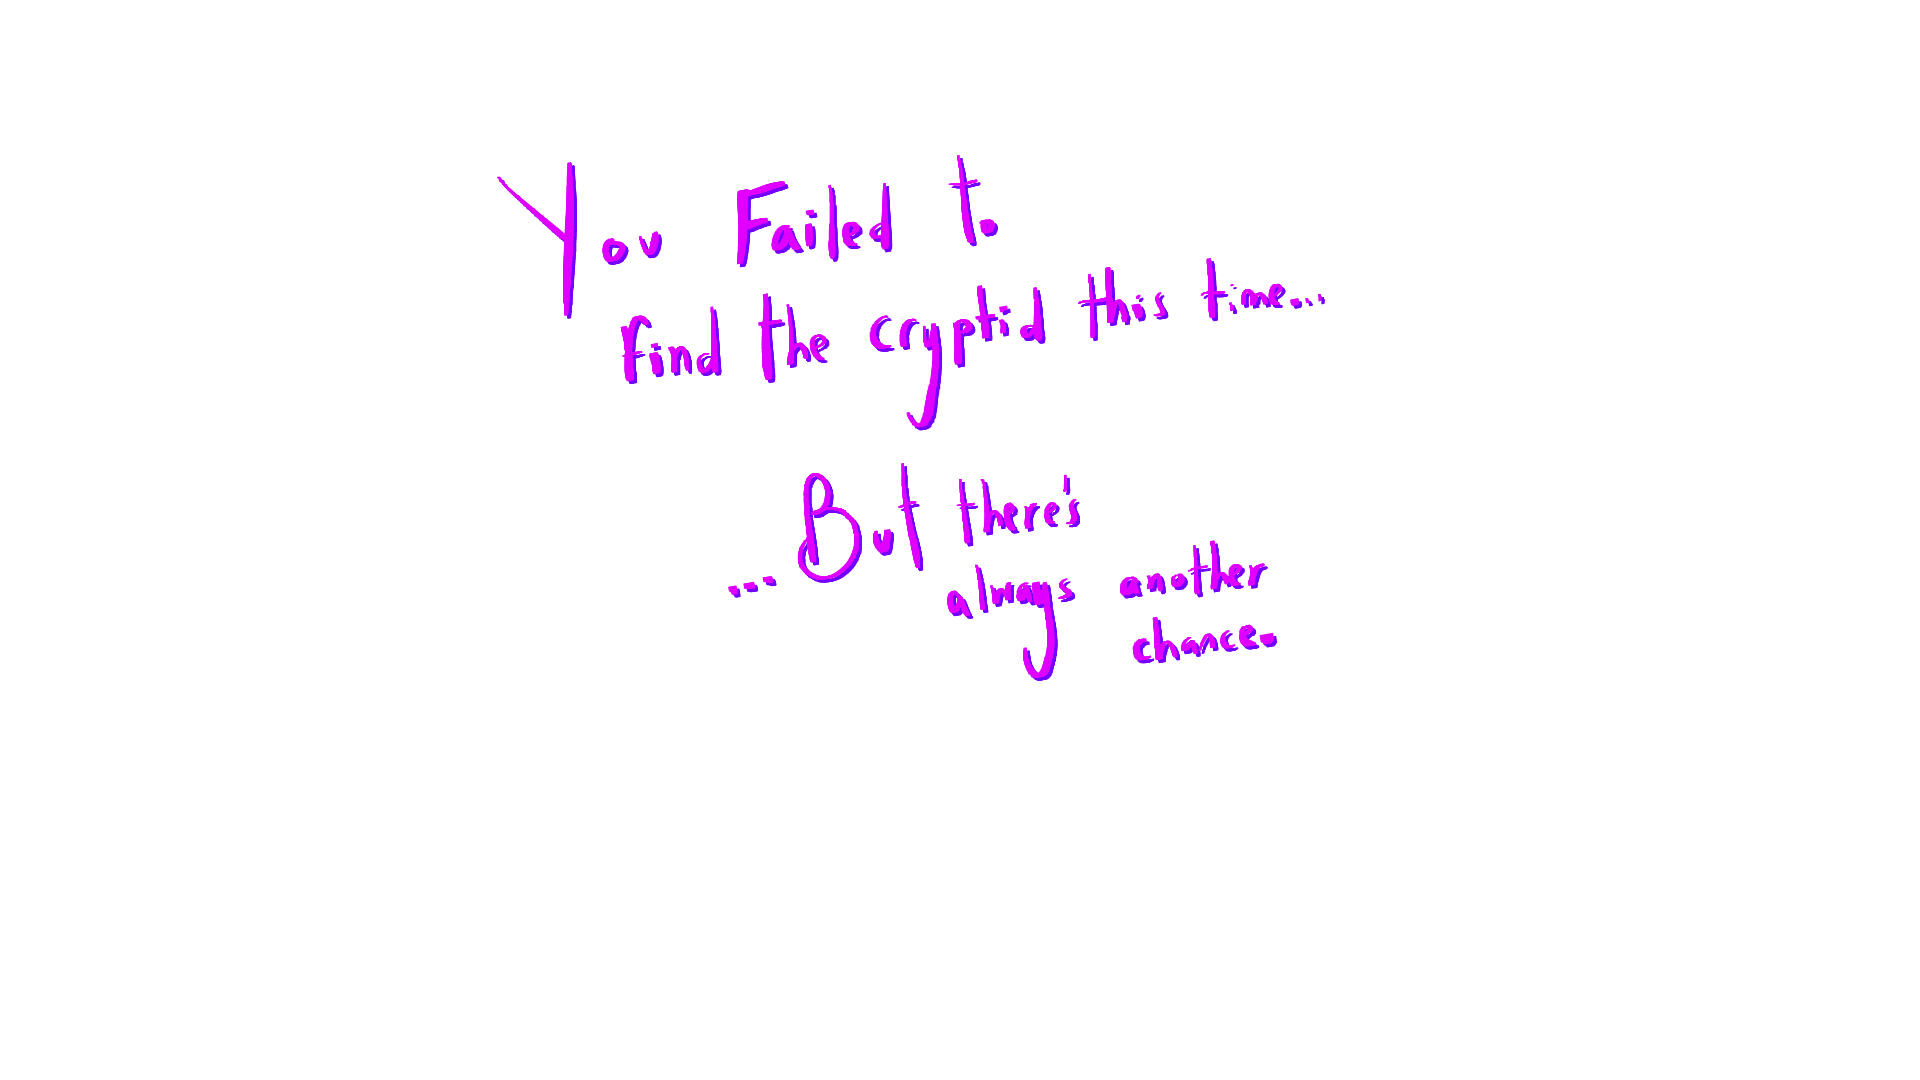 You Failed to
find the cryptid this time...
...But there's
always another
chance.